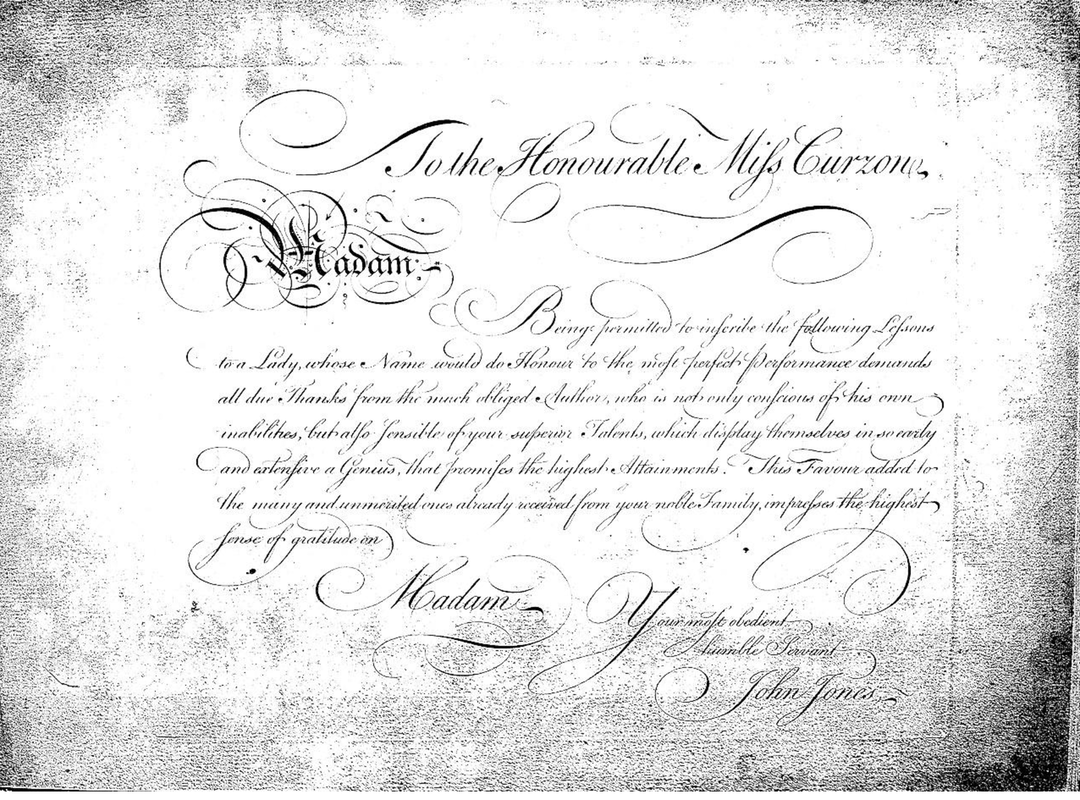 To the Honourable Miſs Curzon,
Madam
Being permitted to inſcribe the following Leſsons
to a Lady, whose Name would do Honour to the moſt perfect Performance demands
all due Thanks from the much obliged Author, who is not only conſcious of his own
inabilities, but alſo ſensible of your superior Talents, which diſplay themselves in so early
and extenſive a Genius, that promiſes the highest Attainments. This Favour added to
the many and unmerited ones already received from your noble Family, impreſses the highest
ſense of gratitude on
Madam
Your moſt obedient
humble Servant
John Jones,